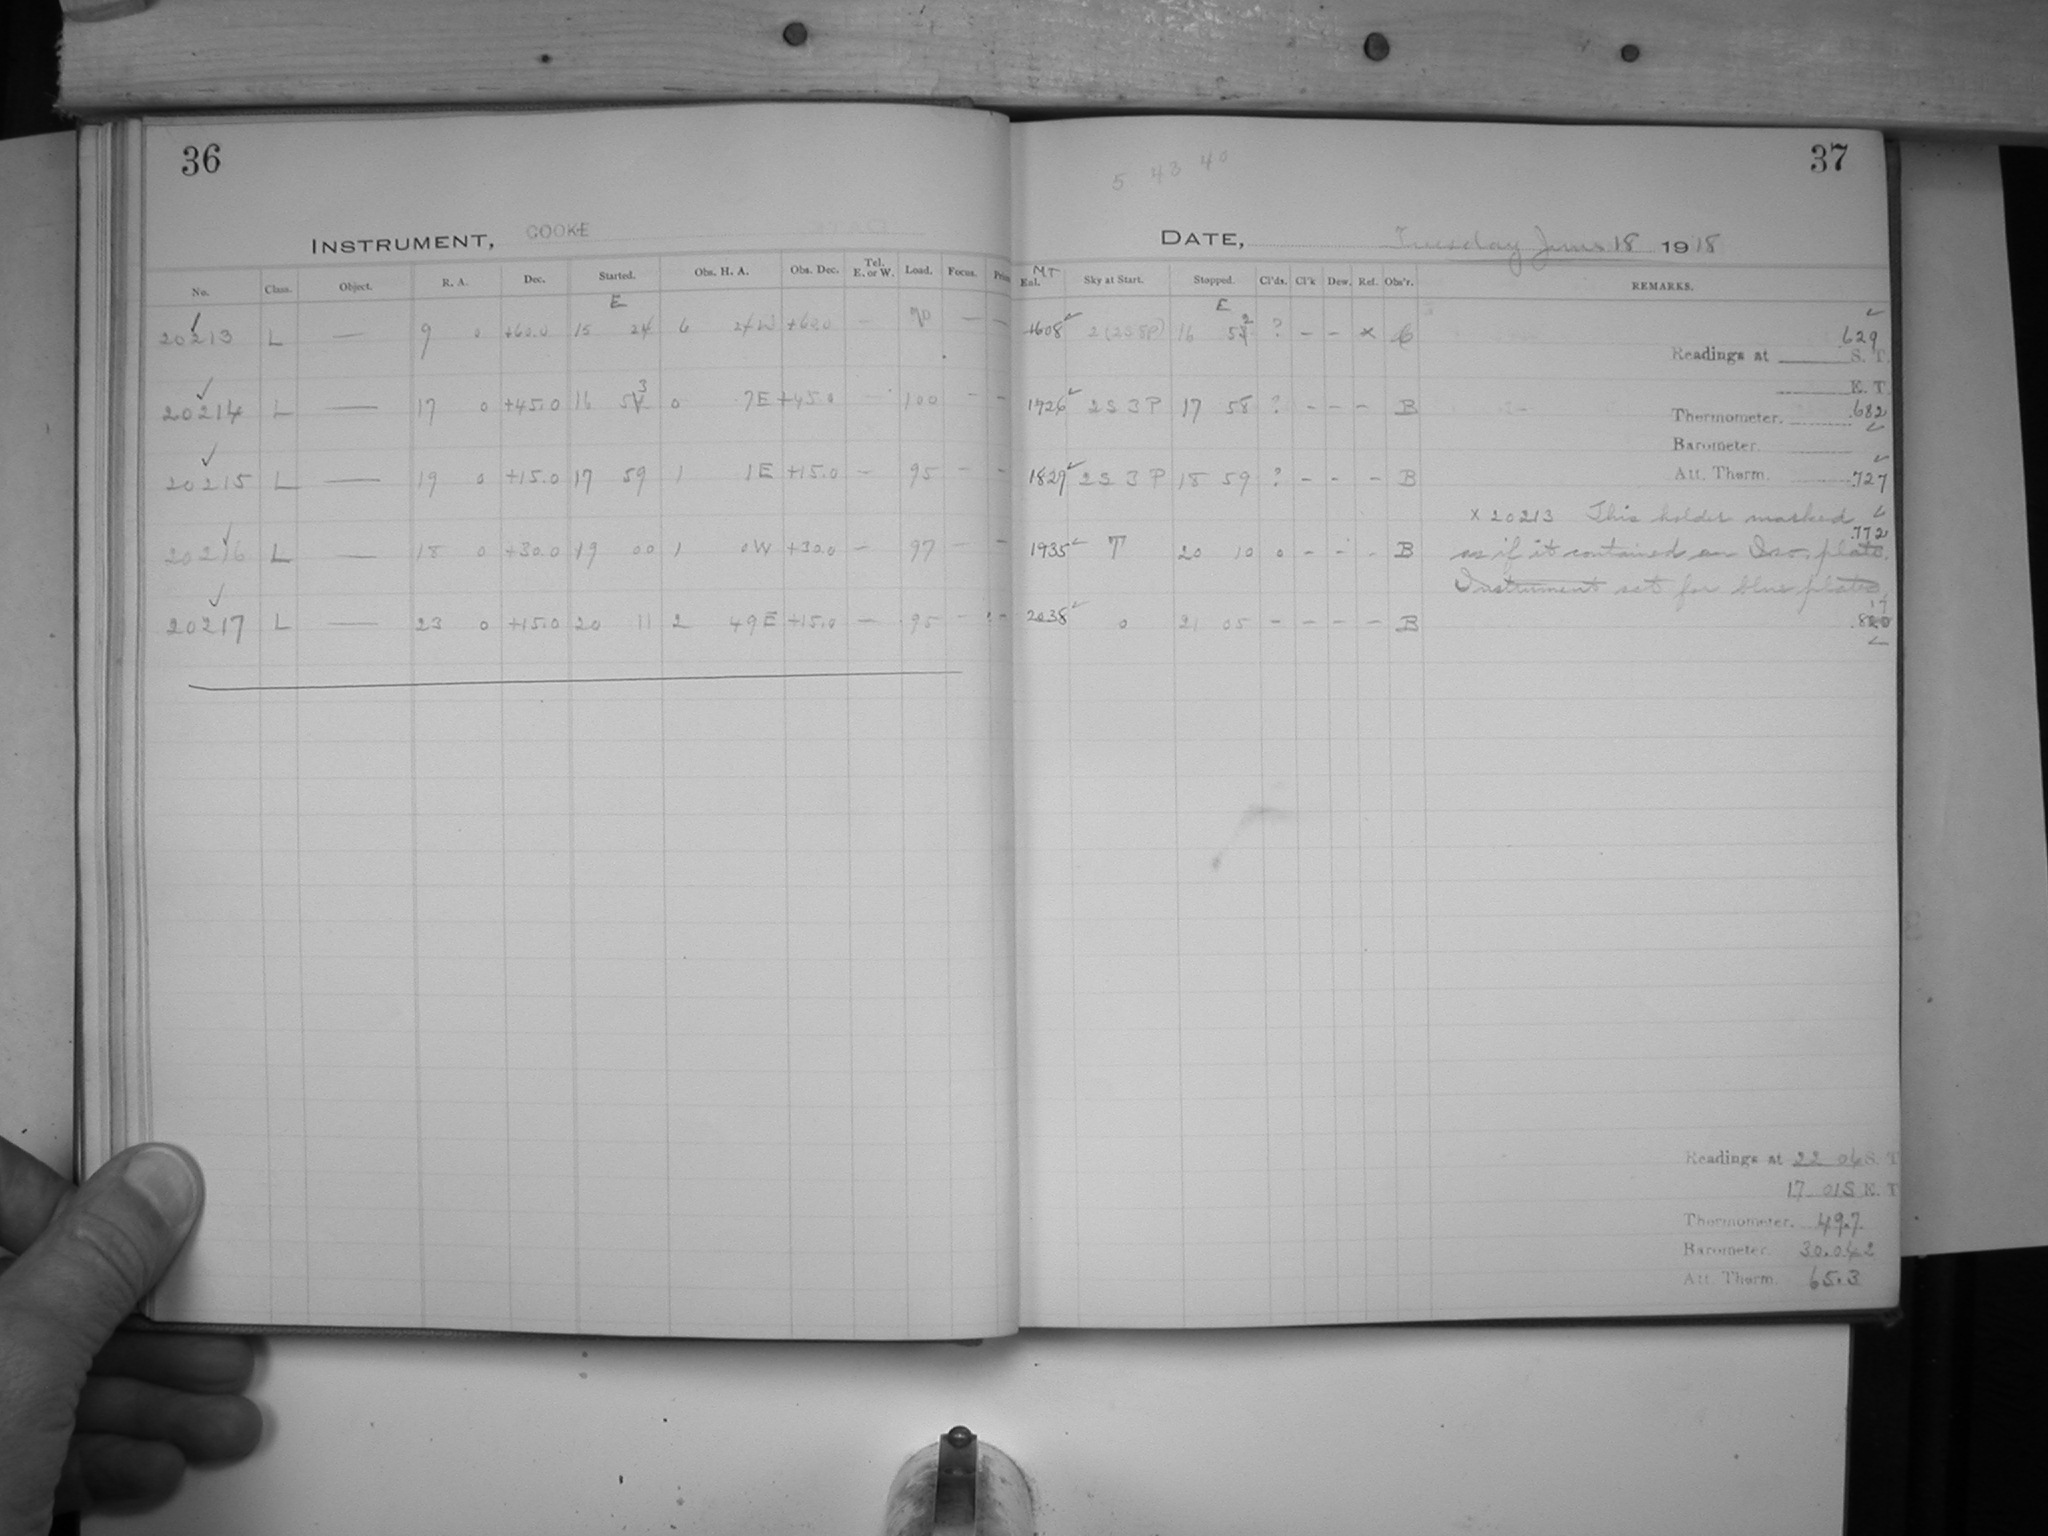 36
37
5 43 40
INSTRUMENT, COOKE
DATE, Tuesday June 18 1918
No. Class. Object. R. A. Dec. Started. Obs. H. A. Obs. Dec. Tel. E. or W. Load. Focus. M.T. Eal. Sky at Start. Stopped. Cl'ds. Cl'k Dew. Ref. Obs'r. REMARKS.
E E
20213 L — 9 0 +60.0 15 24 6 24W +60.0 — — — 1608 2(2S8P) 16 52 ? — — x C .629
Readings at S. T.
E. T.
20214 L — 17 0 +45.0 16 53 0 7E +45.0 — 100 — — 1726 2S 3P 17 58 ? - - - B .682
Thermometer.
Barometer.
20215 L — 19 0 +15.0 17 59 1 1E +15.0 — 95 — — 1829 2S 3P 18 59 ? - - - B .727
Att. Therm.
x 20213 This holder marked
20216 L — 18 0 +30.0 19 00 1 0W +30.0 — 97 — — 1935 T 20 10 0 - - - B .772
as if it contained an Iso. plate.
Instrument set for blue plates.
20217 L — 23 0 +15.0 20 11 2 49E +15.0 — 95 — — 2038 0 21 05 - - - - B .817
Readings at 22 06 S. T.
17 015 E. T.
Thermometer. 49.7
Barometer. 30.042
Att. Therm. 65.3